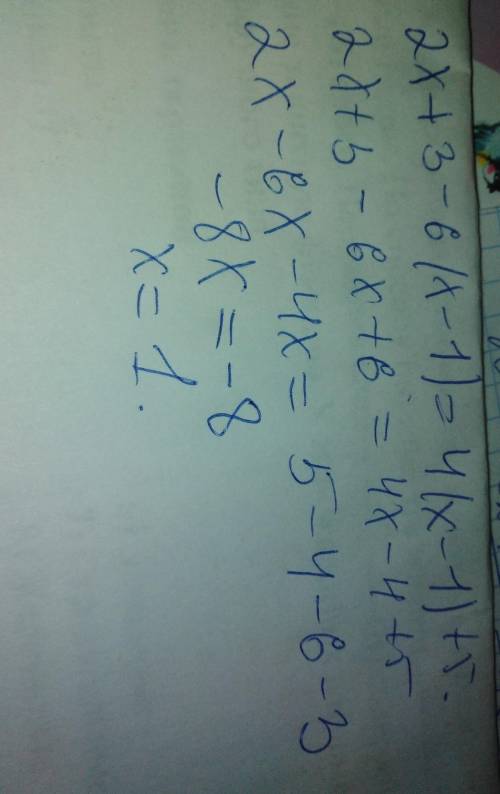 2x+3-6(x-1)=4(x-1)+5.
2x+3-6x+6=4x-4+5
2x-6x-4x=5-4-6-3
-8x=-8
x=1.